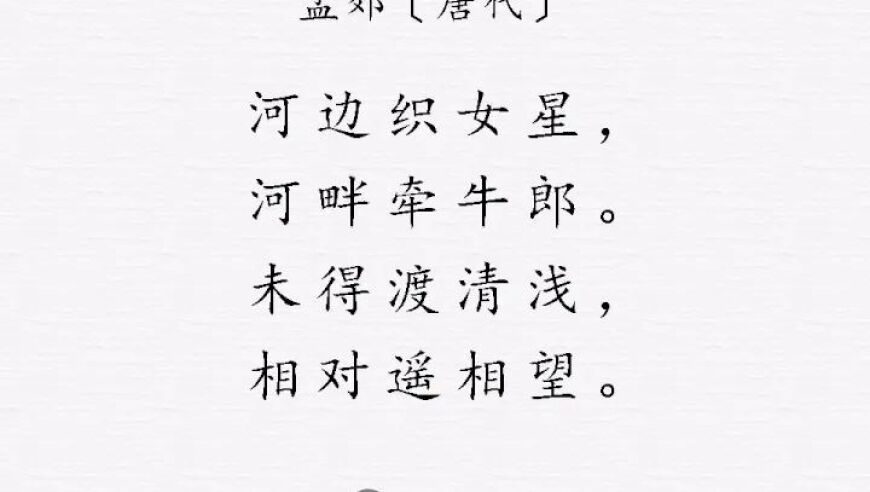 孟郊〔唐代〕
河边织女星，
河畔牵牛郎。
未得渡清浅，
相对遥相望。